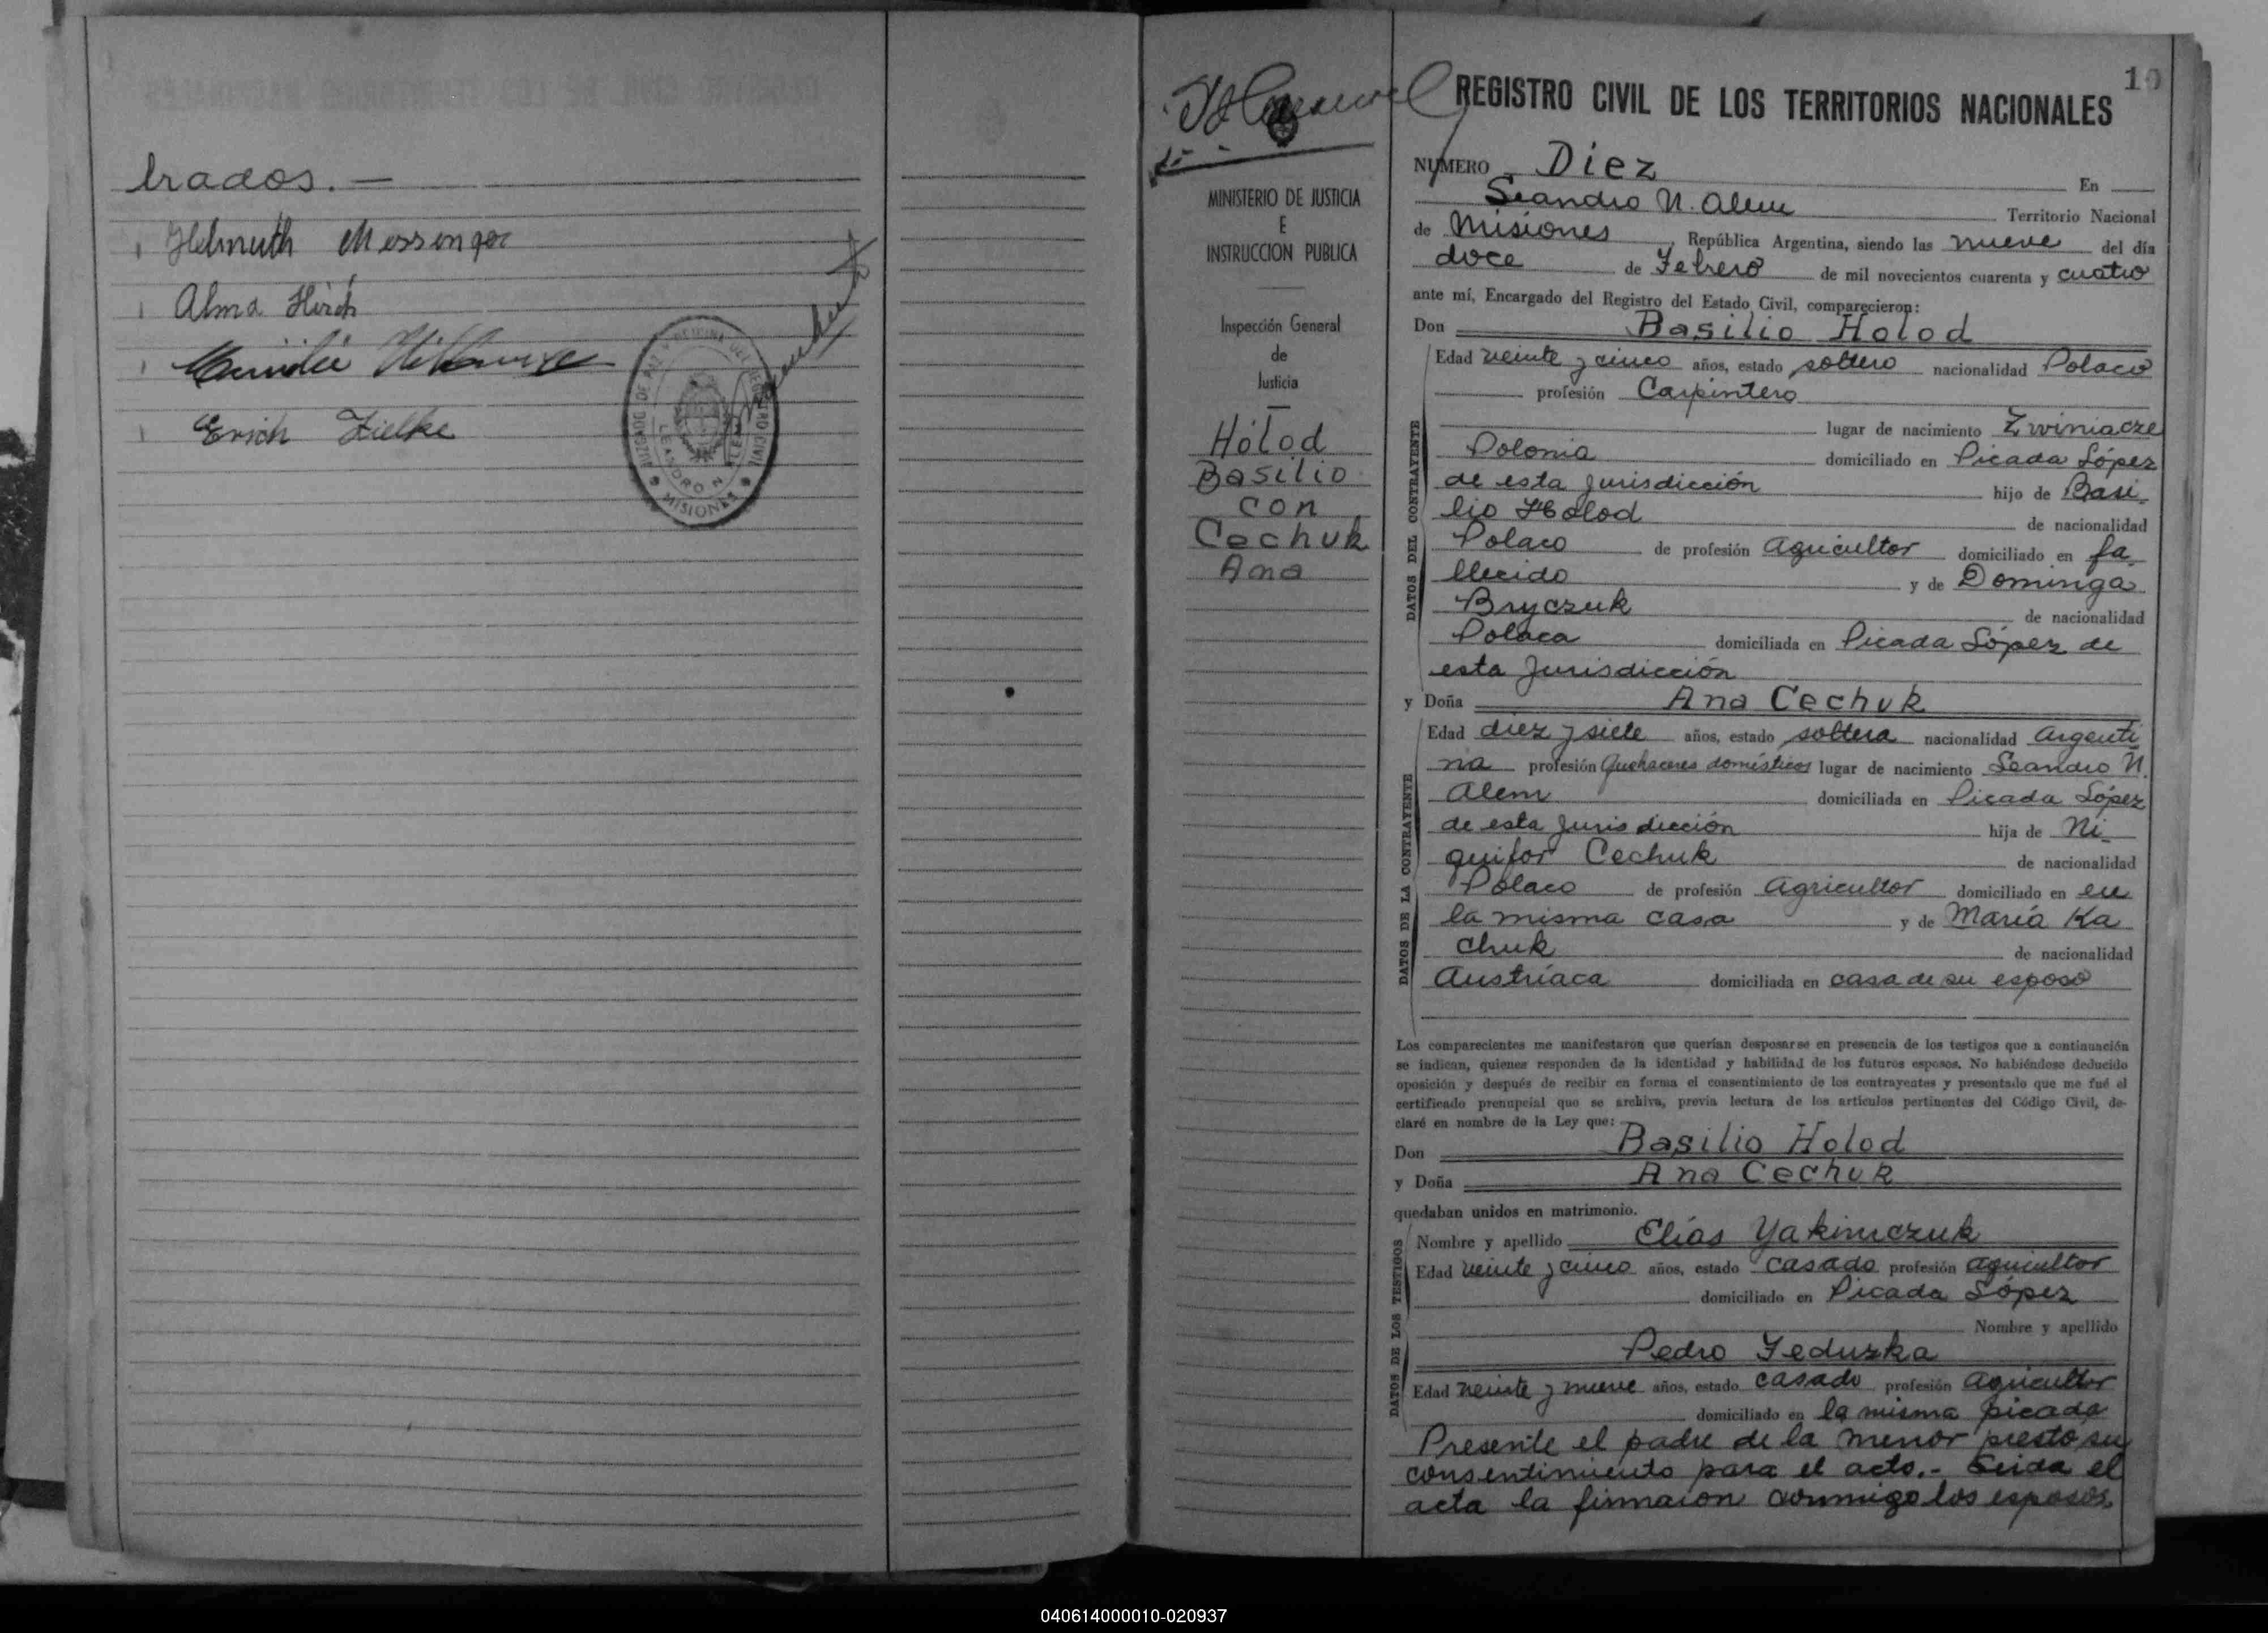 trados. —
Helmuth Messinger
Alma Hirch
Erich Zielke
JUZGADO DE PAZ OFICINA DEL REGISTRO CIVIL
LEANDRO N. ALEM
MISIONES
MINISTERIO DE JUSTICIA
E
INSTRUCCION PUBLICA
Inspección General
de
Justicia
Hólod
Basilio
con
Cechuk
Ana
10
REGISTRO CIVIL DE LOS TERRITORIOS NACIONALES
NUMERO Diez En
Leandro N. Alem Territorio Nacional
de Misiones, República Argentina, siendo las nueve del día
doce de Febrero de mil novecientos cuarenta y cuatro
ante mí, Encargado del Registro del Estado Civil, comparecieron:
Don Basilio Holod
DATOS DEL CONTRAYENTE
Edad veinte y cinco años, estado soltero nacionalidad Polaco
profesión Carpintero
lugar de nacimiento Zwiniacze
Polonia domiciliado en Picada López
de esta jurisdicción hijo de Basi-
lio Holod de nacionalidad
Polaco de profesión Agricultor domiciliado en fa-
llecido y de Dominga
Bryczuk de nacionalidad
Polaca domiciliada en Picada López de
esta Jurisdicción
y Doña Ana Cechuk
DATOS DE LA CONTRAYENTE
Edad diez y siete años, estado soltera nacionalidad Argenti
na profesión Quehaceres domésticos lugar de nacimiento Leandro N.
Alem domiciliada en Picada López
de esta Jurisdicción hija de Ni-
quifor Cechuk de nacionalidad
Polaco de profesión Agricultor domiciliado en en
la misma casa y de María Ka
chuk de nacionalidad
Austríaca domiciliada en casa de su esposo
Los comparecientes me manifestaron que querían desposarse en presencia de los testigos que a continuación
se indican, quienes responden de la identidad y habilidad de los futuros esposos. No habiéndose deducido
oposición y después de recibir en forma el consentimiento de los contrayentes y presentado que me fué el
certificado prenupcial que se archiva, previa lectura de los artículos pertinentes del Código Civil, de-
claré en nombre de la Ley que:
Don Basilio Holod
y Doña Ana Cechuk
quedaban unidos en matrimonio.
DATOS DE LOS TESTIGOS
Nombre y apellido Elías Yakimczuk
Edad veinte y cinco años, estado casado profesión agricultor
domiciliado en Picada López
Nombre y apellido
Pedro Feduzka
Edad veinte y nueve años, estado casado profesión agricultor
domiciliado en la misma picada
Presente el padre de la menor presto su
consentimiento para el acto.- Leida el
acta la firmaron conmigo los esposos,
040614000010-020937